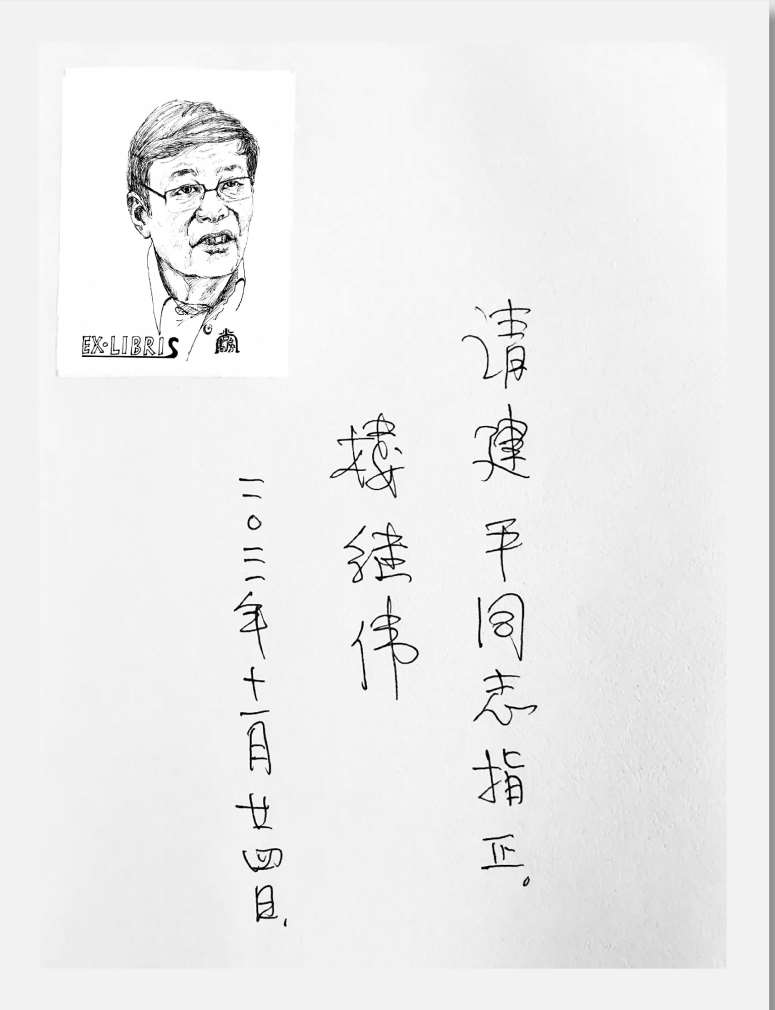 EX·LIBRIS
请建平同志指正。
楼继伟
二〇二二年十一月廿四日.